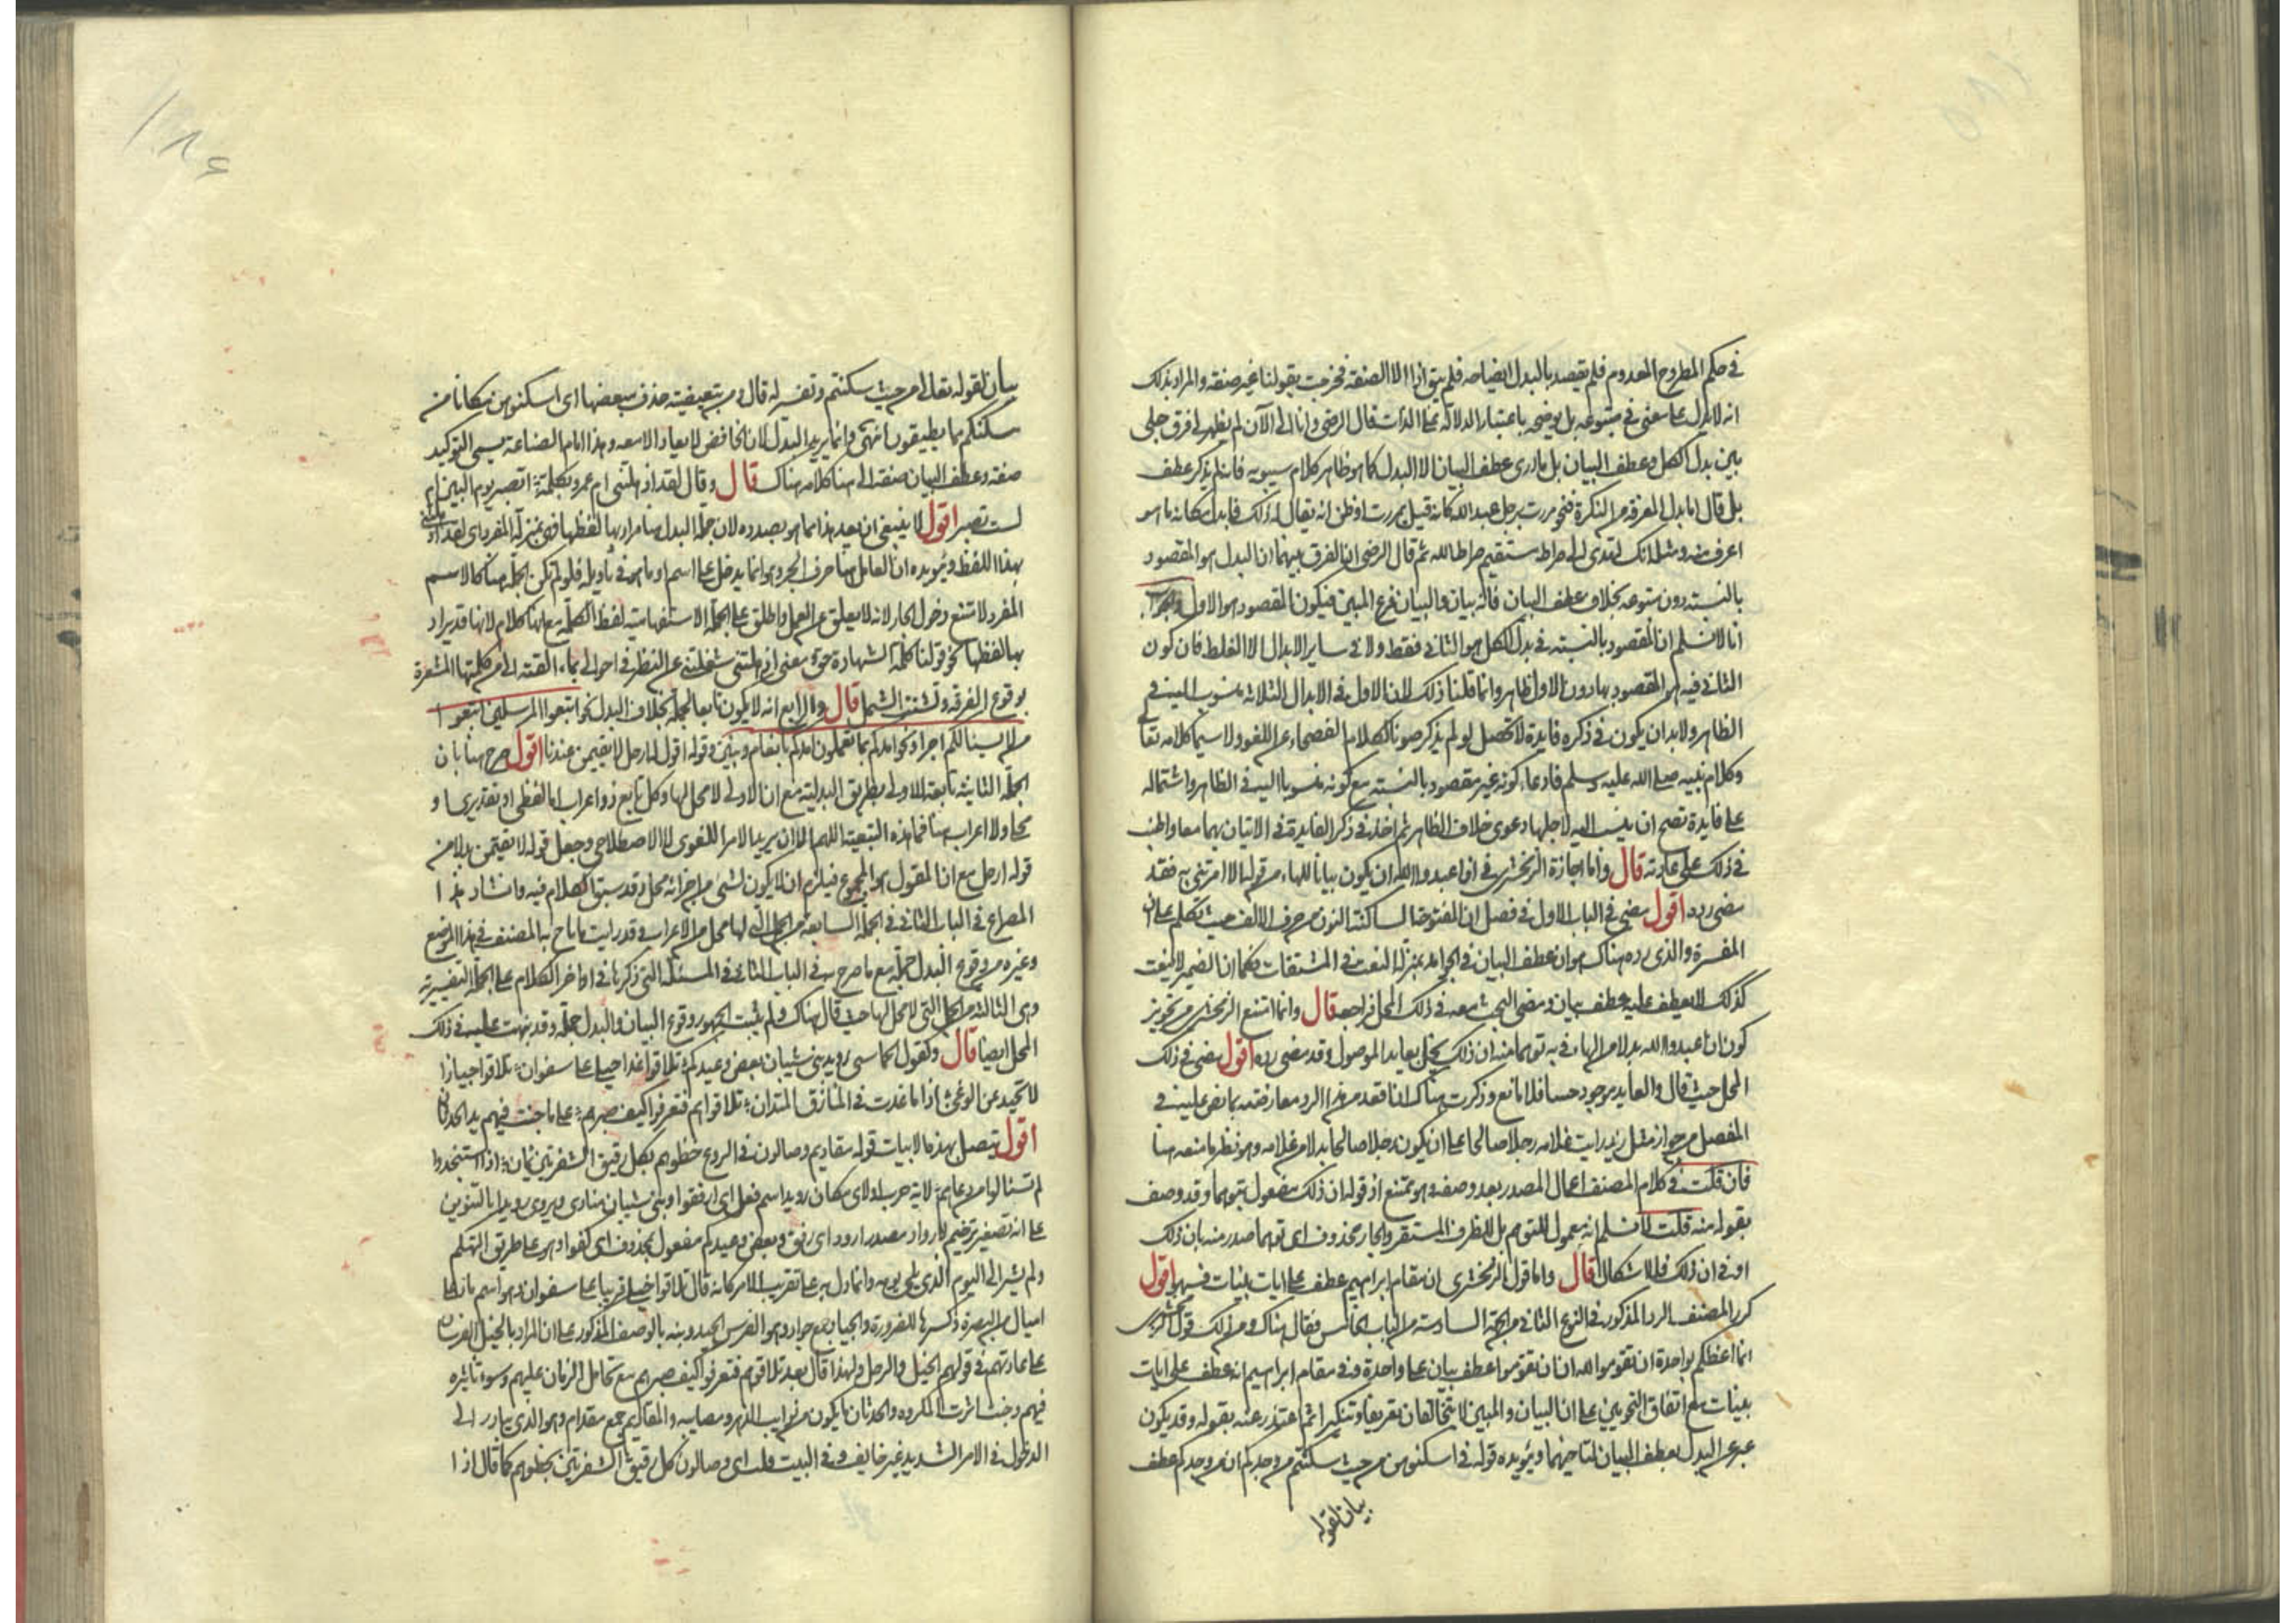 في حكم المطروح المعدوم فلم يقصد بالبدل ايضاحه فلم يبق اذا الا الصنفه فخرجت بقولنا غير صفة والمراد بذلك
انه لا يدل على معنى في متبوعه بل يوضحه باعتبار الدلالة على الذات قال الرضي وانا الى الآن لم يظهر لي فرق جلي
بين بدل الكل وعطف البيان بل ما ارى عطف البيان الا البدل كما هو ظاهر كلام سيبويه فانه لم يذكر عطف
بل قال اما بدل المعرفة من النكرة فنحو مررت برجل عبد الله كانه قيل بمن مررت او ظن انه يقال له ذلك فابدل مكانه ما هو
اعرف منه ومثله انك لتهدى الى صراط مستقيم صراط الله ثم قال الرضي ان الفرق بينهما ان البدل هو المقصود
بالنسبة دون متبوعه بخلاف عطف البيان فانه بيان والبيان فرع المبين فيكون المقصود هو الاول والجواب
انا لا نسلم ان المقصود بالنسبة في بدل الكل هو الثاني فقط ولا في ساير الابدال الا الغلط فان كون
الثاني فيه هو المقصود بها دون الاول ظاهر وانما قلنا ذلك لان الاول في الابدال الثلاثة منسوب اليه في
الظاهر ولا بد ان يكون في ذكره فايدة لا تحصل لو لم يذكر صونا لكلام الفصحاء عن اللغو ولا سيما كلامه تعالى
وكلام نبيه صلى الله عليه وسلم فادعاء كونه غير مقصود بالنسبة مع كونه منسوبا اليه في الظاهر واشتماله
على فايدة تصح ان ينسب اليه لاجلها دعوى خلاف الظاهر ثم اخذ في ذكر الفايدة في الاتيان بهما معا واطنب
في ذلك على عادته قال واما اجازة الزمخشري في ان اعبدوا الله ان يكون بيانا للهاء من قوله الا ما امرتني به فقد
مضى رده اقول مضى في الباب الاول في فصل ان المفتوحة الساكنة النون من حرف الالف حيث تكلم على ان
المفسرة والذي رده هناك هو ان عطف البيان في الجوامد بمنزلة النعت في المشتقات فكما ان الضمير لا ينعت
كذلك لا يعطف عليه عطف بيان ومضى البحث معه في ذلك المحل فراجعه قال وانما امتنع الزمخشري من تجويز
كون ان اعبدوا الله بدلا من الهاء في به توهما منه ان ذلك يخل بعايد الموصول وقد مضى رده اقول مضى في ذلك
المحل حيث قال والعايد موجود حسا فلا مانع وذكرت هناك
المفصل من جواز مثل زيد رايت غلامه رجلا صالحا على ان يكون رجلا صالحا بدلا من غلامه وهو نظير ما منعه هنا
فان قلت في كلام المصنف اعمال المصدر بعد وصفه وهو ممتنع اذ قوله ان ذلك مفعول بتوهما وقد وصف
بقوله منه قلت لا نسلم انه معمول للتوهم بل للظرف المستقر والجار محذوف اى توهما صدر منه بان ذلك
او في ان ذلك فلا اشكال قال واما قول الزمخشري ان مقام ابراهيم عطف على ايات بينات فسهو اقول
كرر المصنف الرد المذكور في النوع الثاني من الجهة السادسة من الباب الخامس فقال هناك ومن ذلك قول الزمخشري
انما اعظكم بواحدة ان تقوموا لله ان ان تقوموا عطف بيان على واحدة وفي مقام ابراهيم انه عطف على ايات
بينات مع اتفاق النحويين على ان البيان والمبين لا يتخالفان تعريفا وتنكيرا ثم اعتذر عنه بقوله وقد يكون
عبر عن البدل بعطف البيان لتاخيهما ويؤيده قوله في اسكنوهن من حيث سكنتم من وجدكم ان من وجدكم عطف
بيان لقوله
بيان لقوله تعالى من حيث سكنتم وتفسير له قال ومن تبعيضية حذف مبعضها اى اسكنوهن مكانا من
مسكنكم مما يطيقون انتهى وانما يريد البدل لان الخافض لا يعاد الا معه وهذا امام الصناعة يسمي التوكيد
صفة وعطف البيان صفة الى هنا كلامه هناك قال وقال لقد اذهلتني ام عمرو بكلمة اتصبر يوم البين ام
لست تصبر اقول لا ينبغي ان يعد هذا مما هو بصدده لان جملة البدل هنا مراد بها لفظها فهي بمنزلة المفرد اى لقد اذهلتني
بهذا اللفظ ويؤيده ان العامل هنا حرف الجر وهو انما يدخل على اسم او ما هو في تأويله فلو لم تكن الجملة هنا كالاسم
المفرد لامتنع دخول الجار لانه لا يعلق عن العمل واطلق على الجملة الاستفهامية لفظ الكلمة مع انها كلام لانها قد يراد
بها لفظها نحو قولنا كلمة الشهادة
بوقوع الفرقة وتشتت الشمل قال والرابع انه لا يكون تابعا لجملة بخلاف البدل نحو اتبعوا المرسلين اتبعوا
من لا يسئالكم اجرا ونحو امدكم بما تعلمون امدكم بانعام وبنين وقوله اقول له ارحل لا تقيمن عندنا اقول صرح هنا بان
الجملة الثانية تابعة للاولى بطريق البدلية مع ان الاولى لا محل لها وكل تابع ذو اعراب اما لفظي او تقديري او
محلى ولا اعراب هنا فما هذه التبعية اللهم الا ان يريد الامر اللغوى لا الاصطلاحي وجعل قوله لا تقيمن بدلا من
قوله ارحل مع ان المقول هو المجموع فيلزم ان لا يكون لشئ من اجزائه محل وقد سبق الكلام فيه وانشاد هذا
المصراع في الباب الثاني في الجملة السابعة من الجمل التي لها محل من الاعراب وقد رايت ما باح به المصنف في هذا الموضع
وغيره من وقوع البدل جملة مع ما صرح به في الباب الثاني في المسئلة التي ذكرها في اواخر الكلام على الجملة التفسيرية
وهي الثالثة من الجمل التي لا محل لها حيث قال هناك ولم يثبت الجمهور وقوع البيان والبدل جملة وقد نبهت عليه في ذلك
المحل ايضا قال وكقول الحماسى رويد بنى شيبان بعض وعيدكم تلاقوا غدا خيلى على سفوان تلاقوا جيادا
لا تحيد عن الوغى اذا ما غدت في المأزق المتدان تلاقوهم فتعرفوا كيف صبرهم على ما جنت فيهم يد الحدثان
اقول يتصل بهذه الابيات قوله مقاديم وصالون في الروع خطوهم بكل رقيق الشفرتين يمان اذا استنجدوا
لم يسئالوا من دعاهم لاية حرب او لاى مكان رويد اسم فعل اى ارفقوا وبنى شيبان منادى ويروى رويدا بالتنوين
على انه تصغير ترخيم لارواد مصدر ارود اى رفق وبعض وعيدكم مفعول بمحذوف اى كفوا وهو على طريق التهكم
ولم يشر الى اليوم الذي يلى يومه وانما دل به على تقريب الامر كانه قال تلاقوا خيلى قريبا على سفوان وهو اسم ماء على
اميال من البصرة ذكر للضرورة والجياد جمع جواد وهو الفرس الجيد وبنه بالوصف المذكور على ان المراد بالخيل الفرسان
على عادتهم في قولهم الخيل والرجل ولهذا قال بعد تلاقوهم فتعرفوا كيف صبرهم مع تحامل الزمان عليهم وسوء تاثيره
فيهم وجنت اثرت المكروه والحدثان ما يكون من نوايب الدهر ومصايبه والمقاديم جمع مقدام وهو الذي يبادر الى
الدخول في الامر الشديد غير خايف وفي البيت قلب اى وصالون كل رقيق الشفرتين بخطوهم كما قال اذا